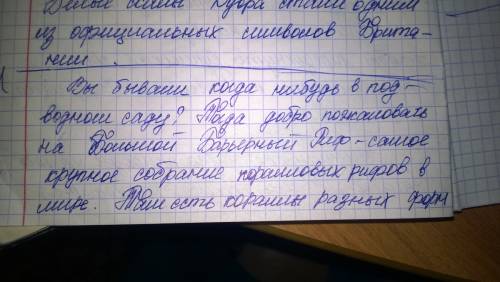 Белые скалы Дувра стали одним
из официальных символов Брита-
нии.
Вы бывали когда нибудь в под-
водном саду? Тогда добро пожаловать
на Большой Барьерный Риф - самое
крупное собрание коралловых рифов в
мире. Там есть кораллы разных форм